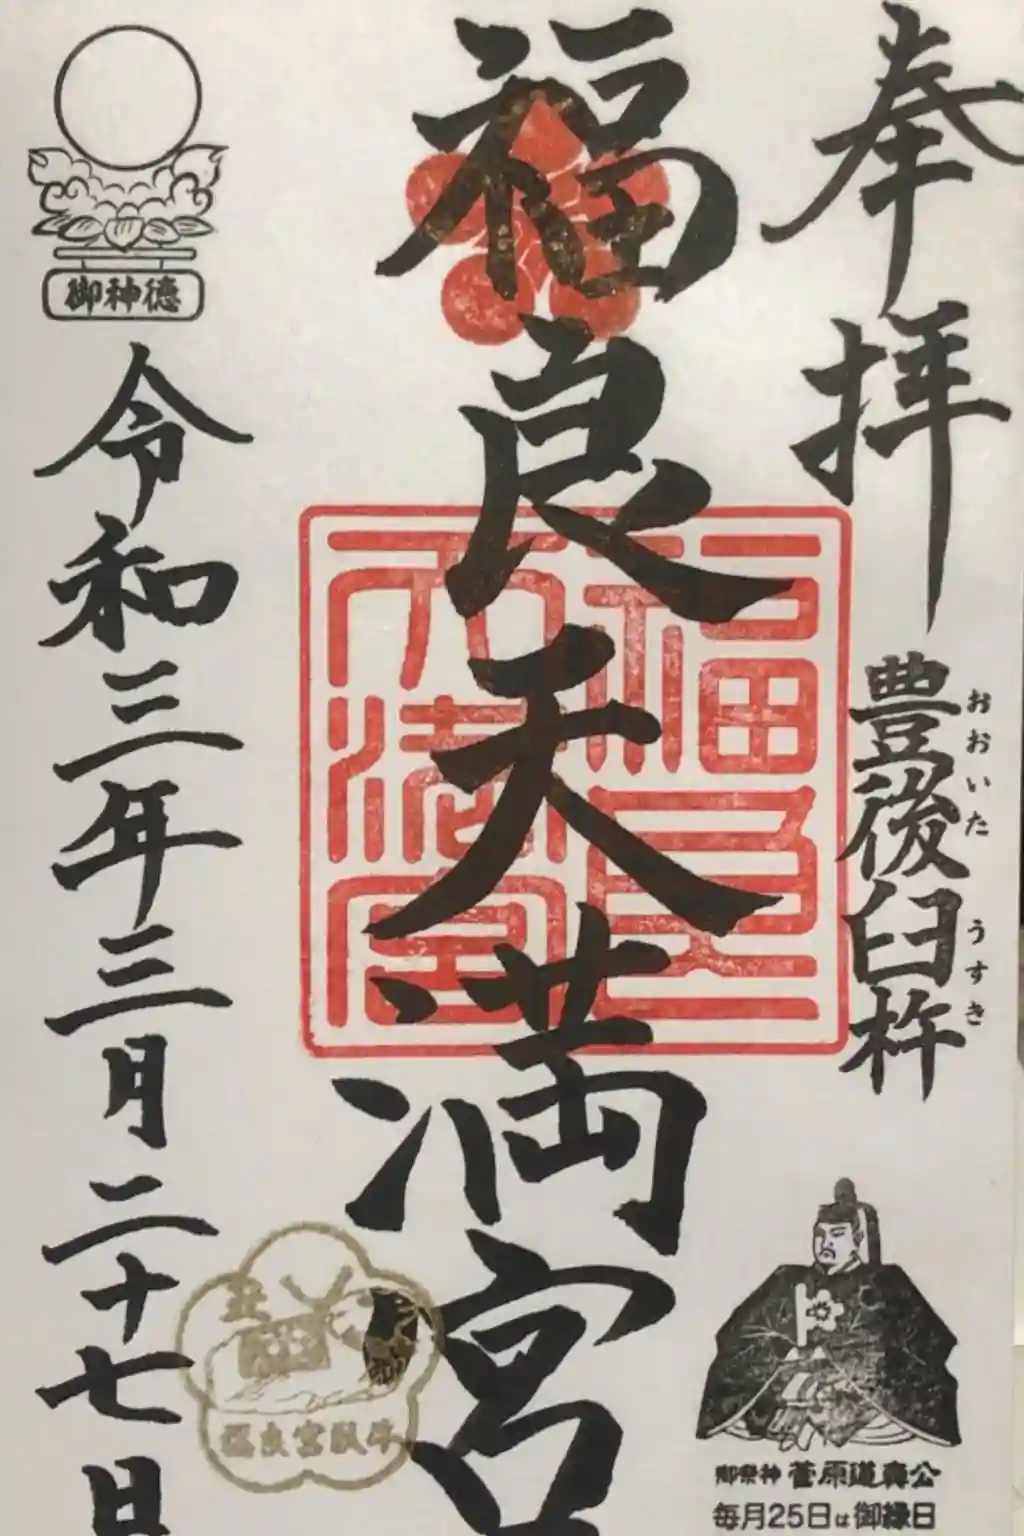 奉拝
豊後臼杵
おおいた
うすき
福良天満宮
福良天満宮
御祭神 菅原道真公
毎月25日は御縁日
御神徳
令和三年三月二十七日
福良宮臥牛